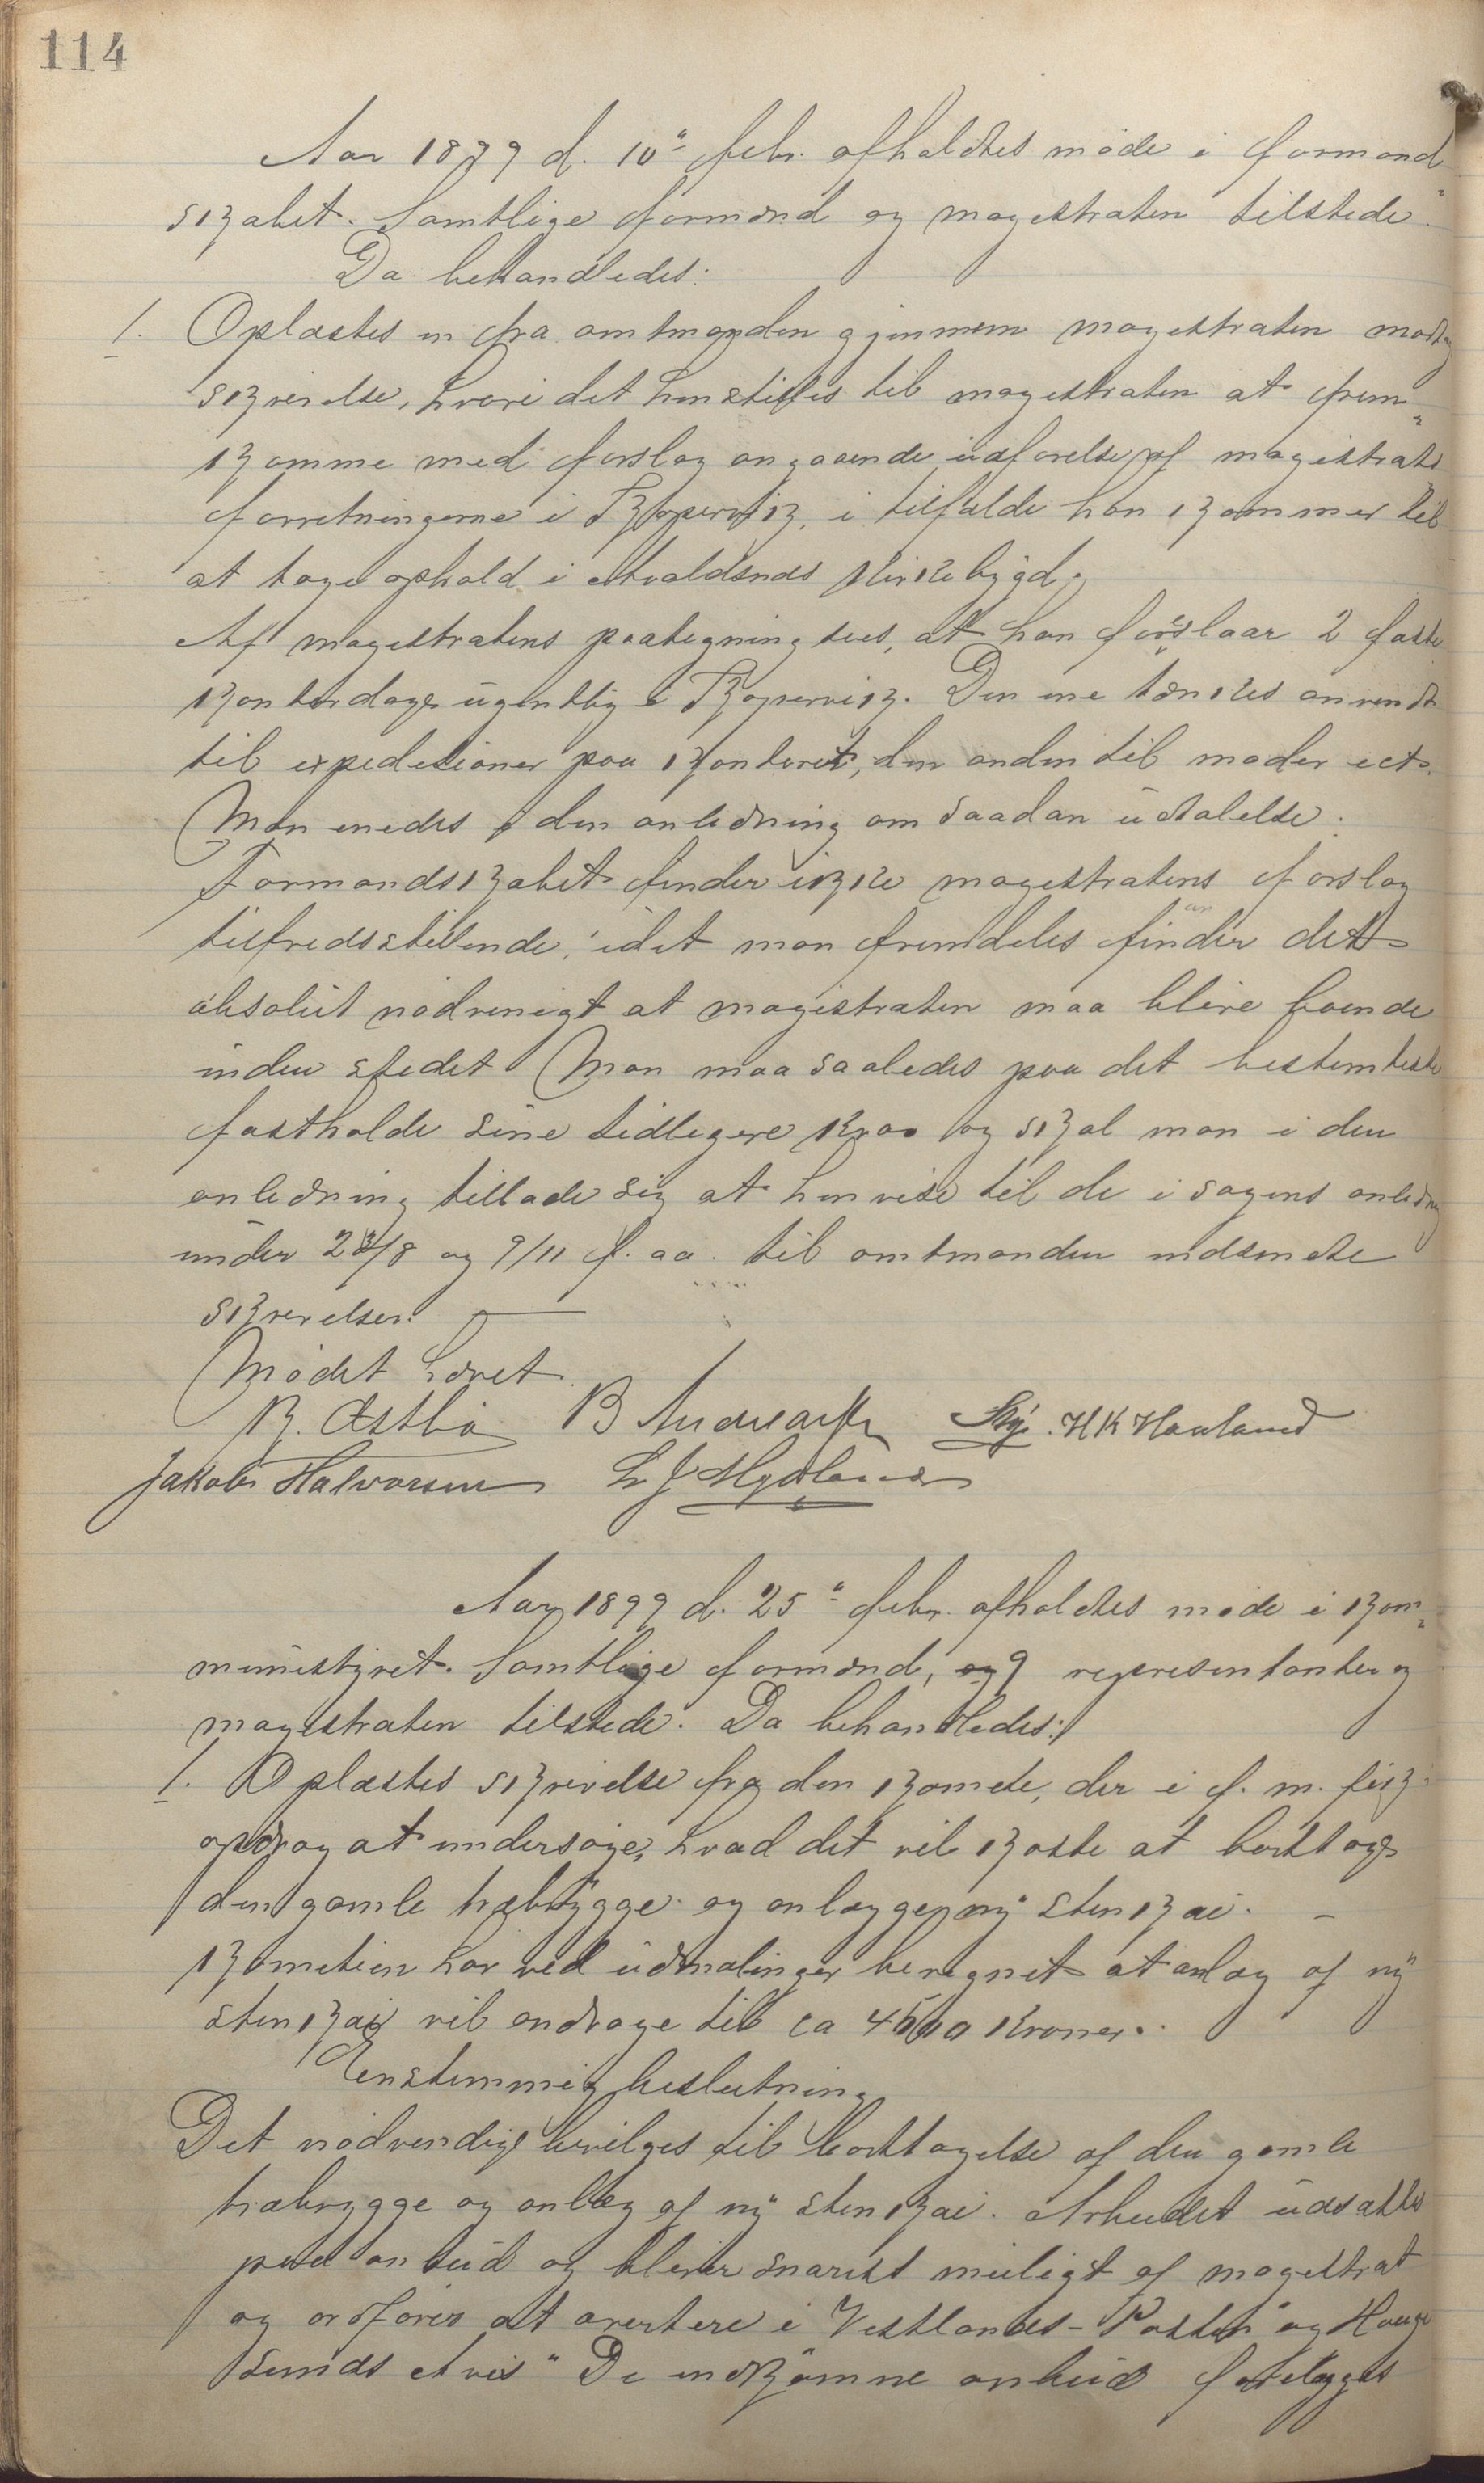 114
Aar 1899 d. 10de febr. afholdtes møde i formand-
skabet. Samtlige formænd og magistraten tilstede.
Da behandledes:
1. Oplæstes en fra amtmanden gjennem magistraten modt.
skrivelse, hvori det henstilles til magistraten at frem-
komme med forslag angaaende udførelse af magistrats
forretningerne i Skopervik, i tilfælde han kommer til
at tage ophold i Avaldsnds Kirkebygd.
Af magistratens paategning sees, at han foreslaar 2 faste
kontordage ugentlig i Skopervik. Den ene tænkes anvendt
til expeditioner paa kontoret, den anden til møder ect.
Man enedes i den anledning om saadan udtalelse:
Formandskabet finder ikke magistratens forslag
tilfredsstillende, idet man fremdeles finder det
absolut nødvenigt at magistraten maa blive boende
inden stedet. Man maa saaledes paa det bestemteste
fastholde sine tidligere krav og skal man i den
anledning tillade sig at henvise til de i sagens anledn
under /8 og 9/11 f. aa. til amtmanden indsendte
skrivelser.
Mødet hævet.
R. Østbø B Andreassen Skj. H K Haaland
Jakob Halvorsen L J Hydland
Aar 1899 d. 25de febr. afholdtes møde i kom-
munestyret. Samtlige formænd, og 9 representanter og
magistraten tilstede. Da behandledes:
1. Oplæstes skrivelse fra den komete, der i f. m. fik
opdrag at undersøge, hvad det vil koste at borttage
den gamle træbrygge og anlægge ny stenkai. –
Kometien har ved udmalinger beregnet at anlæg af ny
stenkai vil andrage til ca 4500 Kroner.
Enstemmig beslutning
Det nødvendige bevilges til borttagelse af den gamle
træbrygge og anlæg af ny stenkai. Arbeidet udsættes
paa anbud og bliver snarest muligt af magistrat
og ordfører at avertere i Vestlands-Posten" og Hauge
sunds Avis" De indkomne anbud forelægges